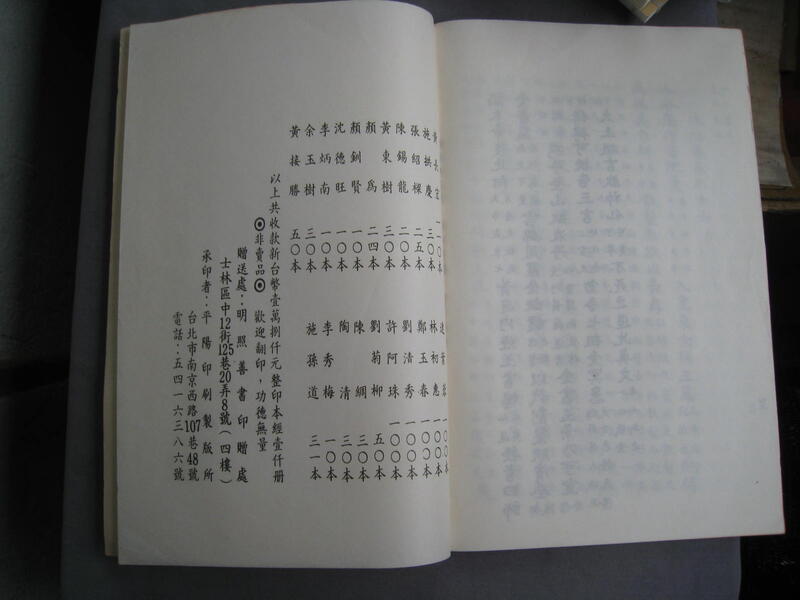 施拱慶 三〇本
張紹樑 二五本
陳錫龍 二〇本
黃東樹 三〇本
顏為 二四本
顏釧賢 一〇本
沈德旺 一〇本
李炳南 一〇本
余玉樹 三〇本
黃接勝 五〇本
林初惠 一〇〇本
鄭玉春 一〇〇本
劉清秀 一〇〇本
許阿珠 一〇〇本
劉菊柳 五〇本
陳綢 三〇本
陶清 三〇本
李秀梅 一〇本
施孫道 三一本
以上共收款新台幣壹萬捌仟元整印本經壹仟册
◎非賣品◎ 歡迎翻印,功德無量
贈送處:明照善書印贈處
士林區中12街125巷20弄8號(四樓)
承印者:平陽印刷製版所
台北市南京西路107巷48號
電話:五四一六三八六號